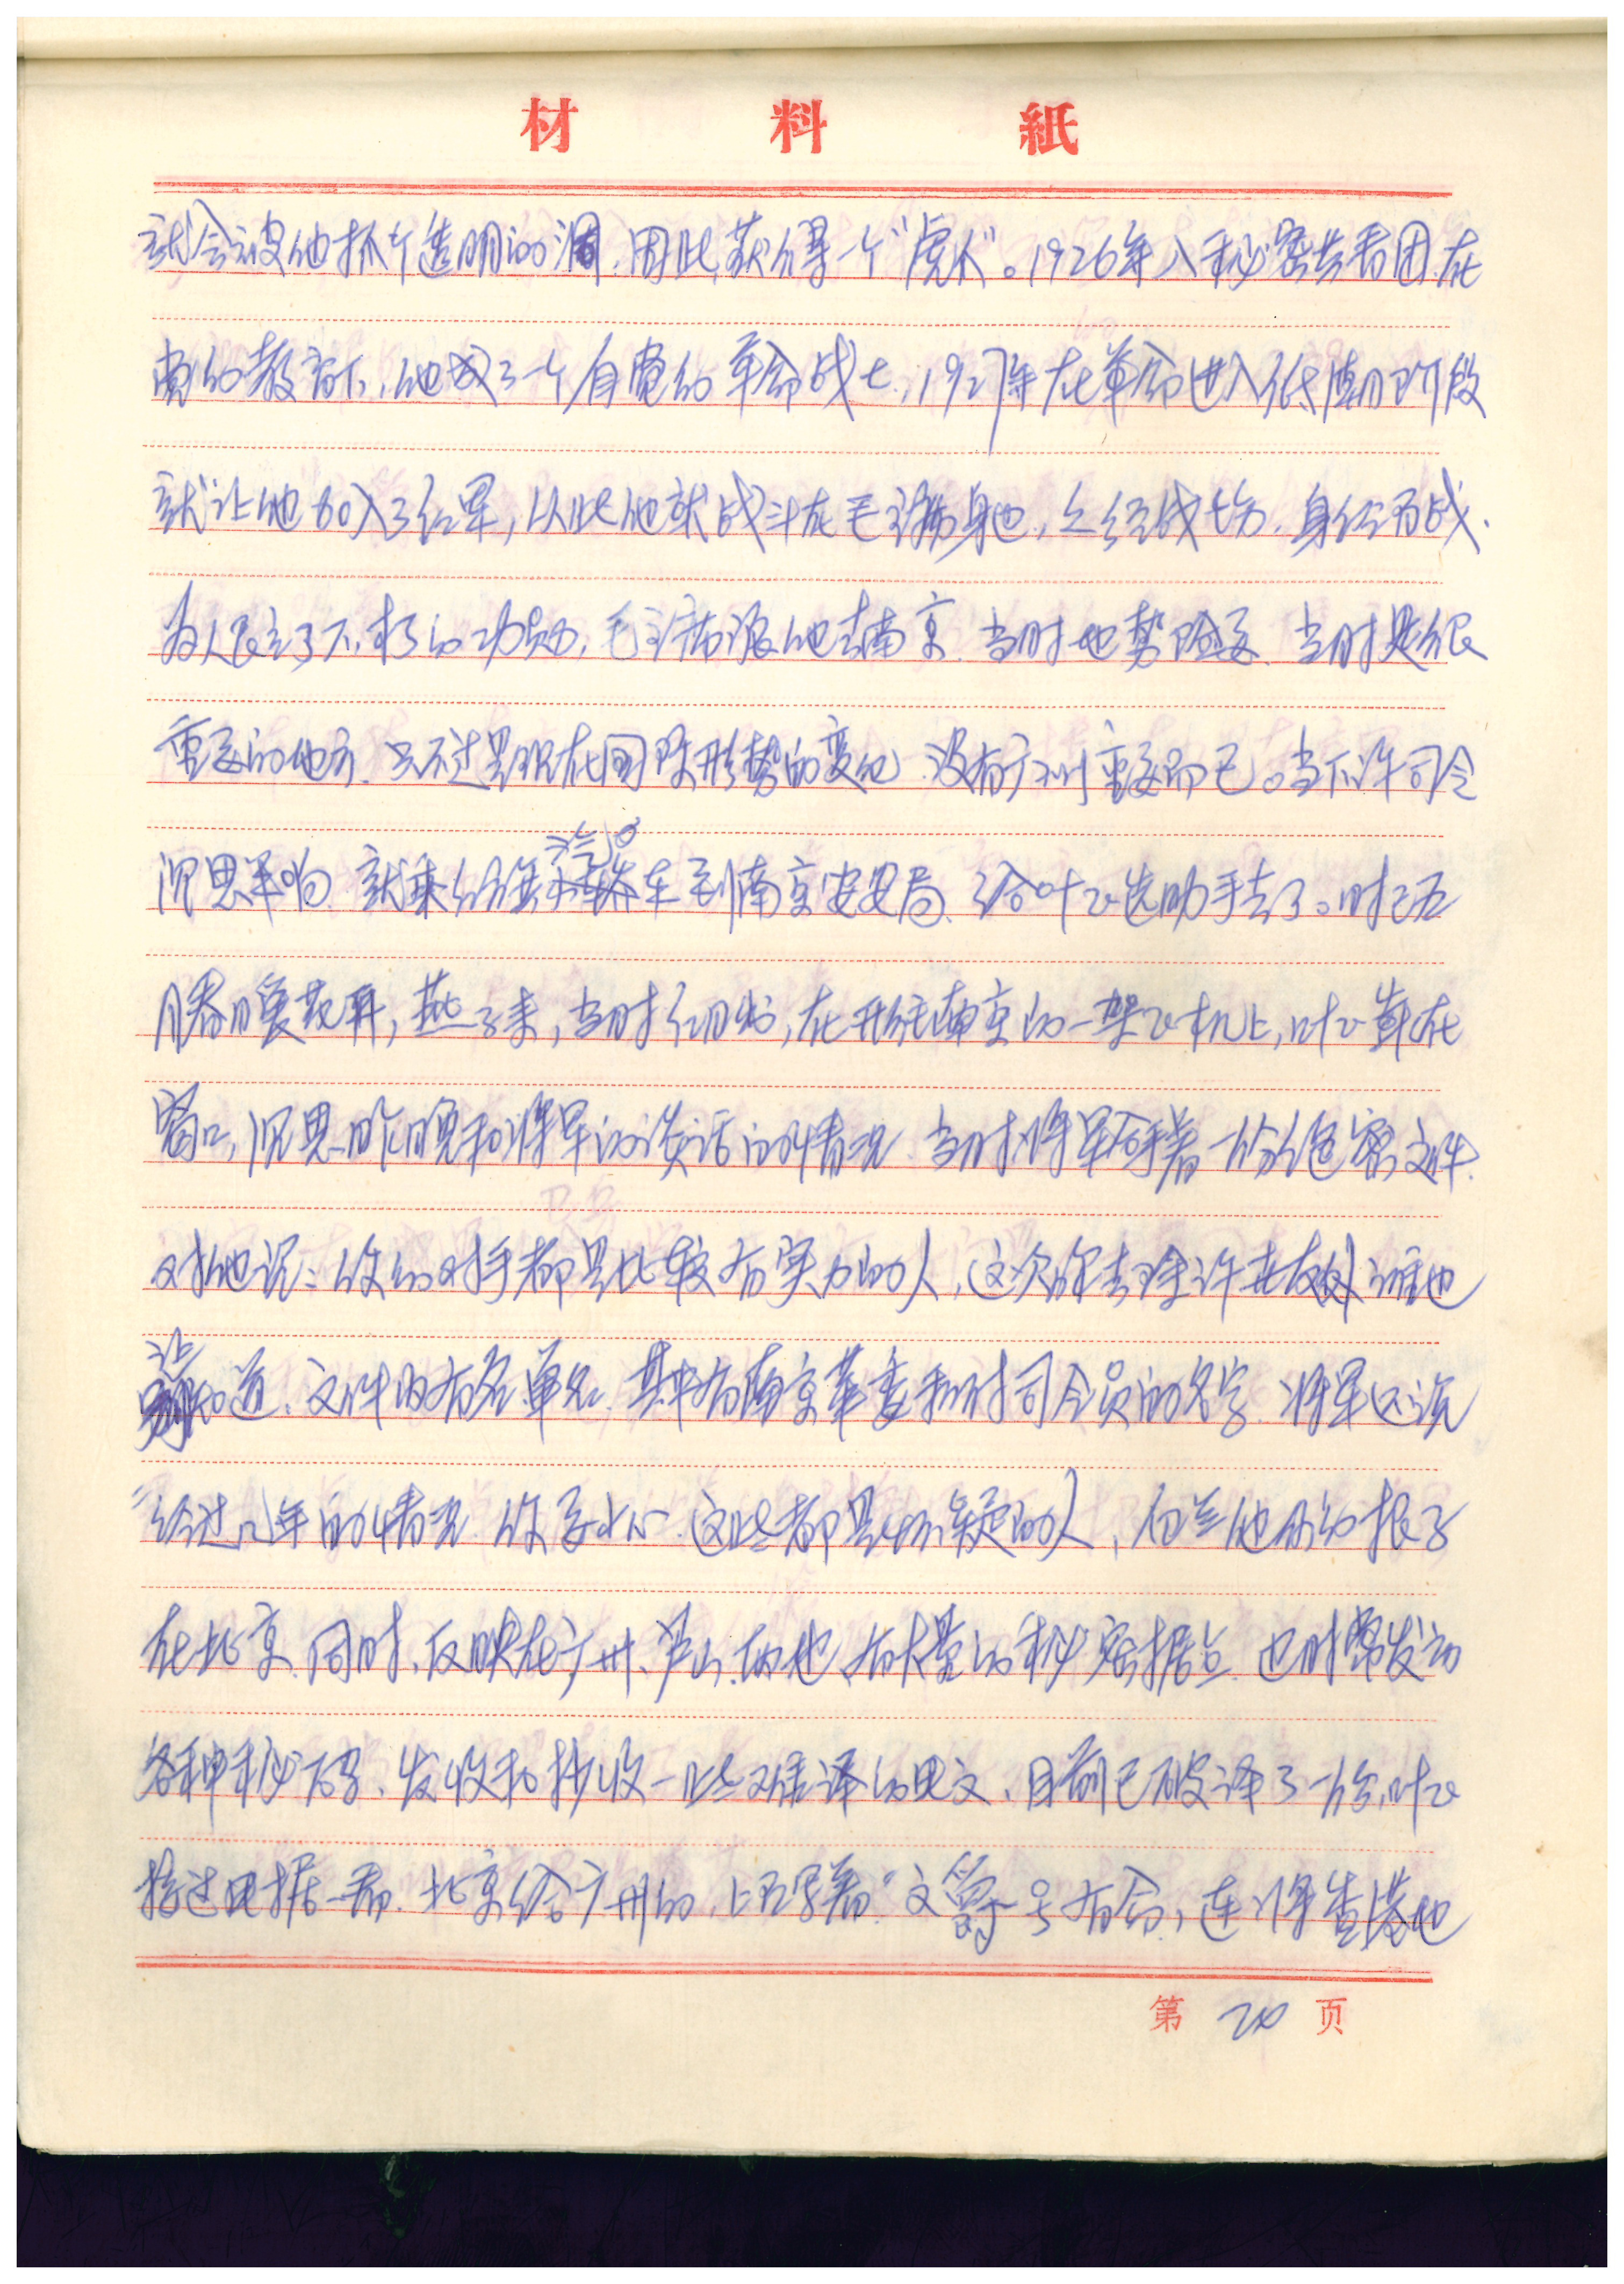 材料紙
就会被他抓个透明的洞，因此获得一个"虎爪"。1926年入秘密共青团，在
党的教育下，他成了一个自觉的革命战士，1927年在革命进入低潮阶段
就让他加入了红军，从此他就战斗在毛主席身边，久经战场，身经百战、
为人民立了不朽的功勋，毛主席派他去南京，当时地势险要，当时是很
重要的地方，只不过是现在国际形势的变化，没有广州重要而已。当下许司令
沉思半响，就乘红旗汽车到南京安全局，给叶飞选助手去了。时已五
月春暖花开，燕子来，当时红日出，在开往南京的一架飞机上，叶飞靠在
窗口，沉思昨晚和将军的谈话的情况，当时将军拿着一份绝密文件，
对他说：你的对手都是比较有实力的人，这次你去除许世友外谁也
让知道，文件内有名单儿，其中有南京革委和付司令员的名字，将军还说
"经过几年的情况，你要小心，这些都是怀疑的人，但是他们的根子
在北京，同时，反映在广州、芦山、两地，有大量的秘密据点，也时常发动
各种秘码，发收和抄收一些难译的电文，目前已破译了一份，叶飞
接过电报一看，北京给广州的，上面写着"文爵号有命，连将查港地
第 20 页